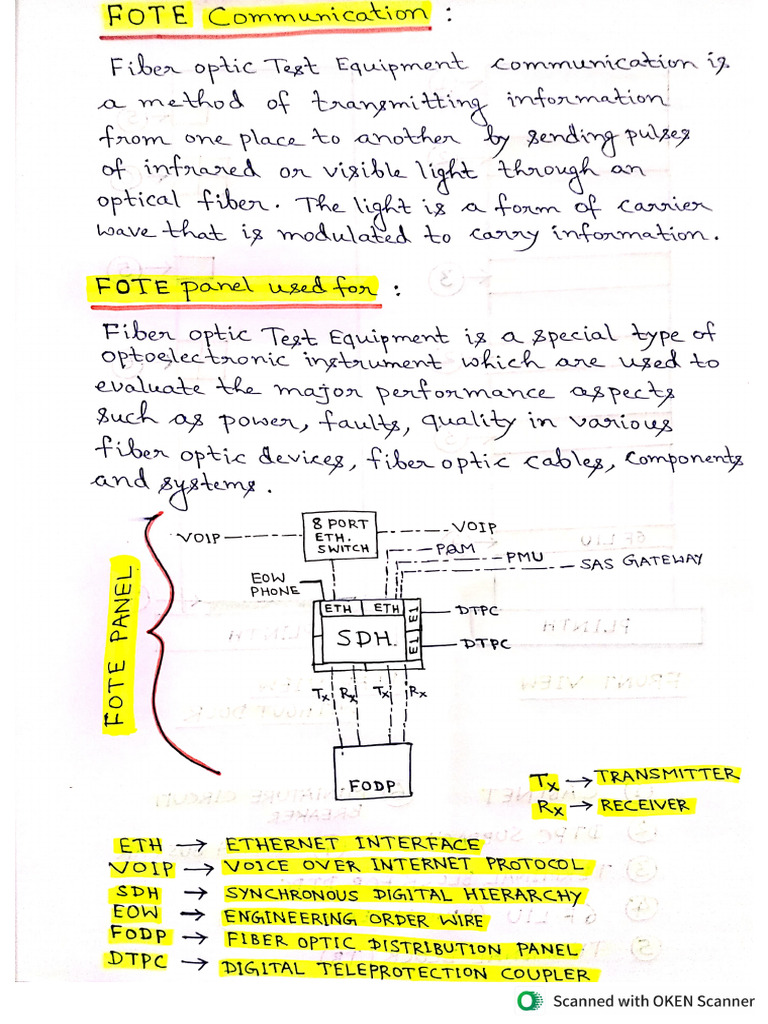 FOTE Communication :
Fiber optic Test Equipment communication is
a method of transmitting information
from one place to another by sending pulses
of infrared or visible light through an
optical fiber. The light is a form of carrier
wave that is modulated to carry information.
FOTE panel used for :
Fiber optic Test Equipment is a special type of
optoelectronic instrument which are used to
evaluate the major performance aspects
such as power, faults, quality in various
fiber optic devices, fiber optic cables, components
and systems.
FOTE PANEL
VOIP
8 PORT
ETH.
SWITCH
VOIP
PQM
PMU
SAS GATEWAY
EOW
PHONE
ETH ETH
E1
DTPC
SDH.
E1
DTPC
Tx Rx Tx Rx
FODP
Tx → TRANSMITTER
Rx → RECEIVER
ETH → ETHERNET INTERFACE
VOIP → VOICE OVER INTERNET PROTOCOL
SDH → SYNCHRONOUS DIGITAL HIERARCHY
EOW → ENGINEERING ORDER WIRE
FODP → FIBER OPTIC DISTRIBUTION PANEL
DTPC → DIGITAL TELEPROTECTION COUPLER
Scanned with OKEN Scanner